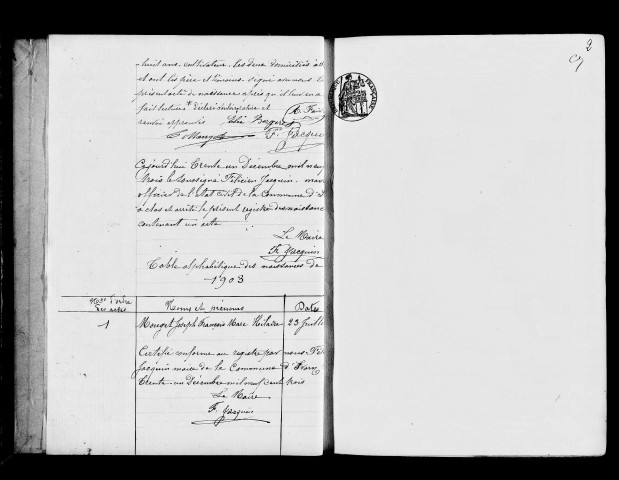 huit ans, cultivateur, les deux domiciliés à
et ont les père et témoins signé avec nous le
présent acte de naissance après qu'il leur en a
fait lecture
Félix Berger
F. Jacquin
Aujourd'hui trente un Décembre mil neuf
trois le soussigné Félicien Jacquin, maire
officier de l'Etat civil de la Commune d'
a clos et arrêté le présent registre des naissances
contenant un acte
Le Maire
F. Jacquin
Table alphabétique des naissances de
1903
Nos d'ordre des actes
Noms et prénoms
Dates
1
Mouget Joseph François Marc Hilaire
23 Juillet
Certifié conforme au registre par nous Fél
Jacquin maire de la Commune
Trente-un Décembre mil neuf cent trois
Le Maire
F. Jacquin
2
REPUBLIQUE FRANÇAISE